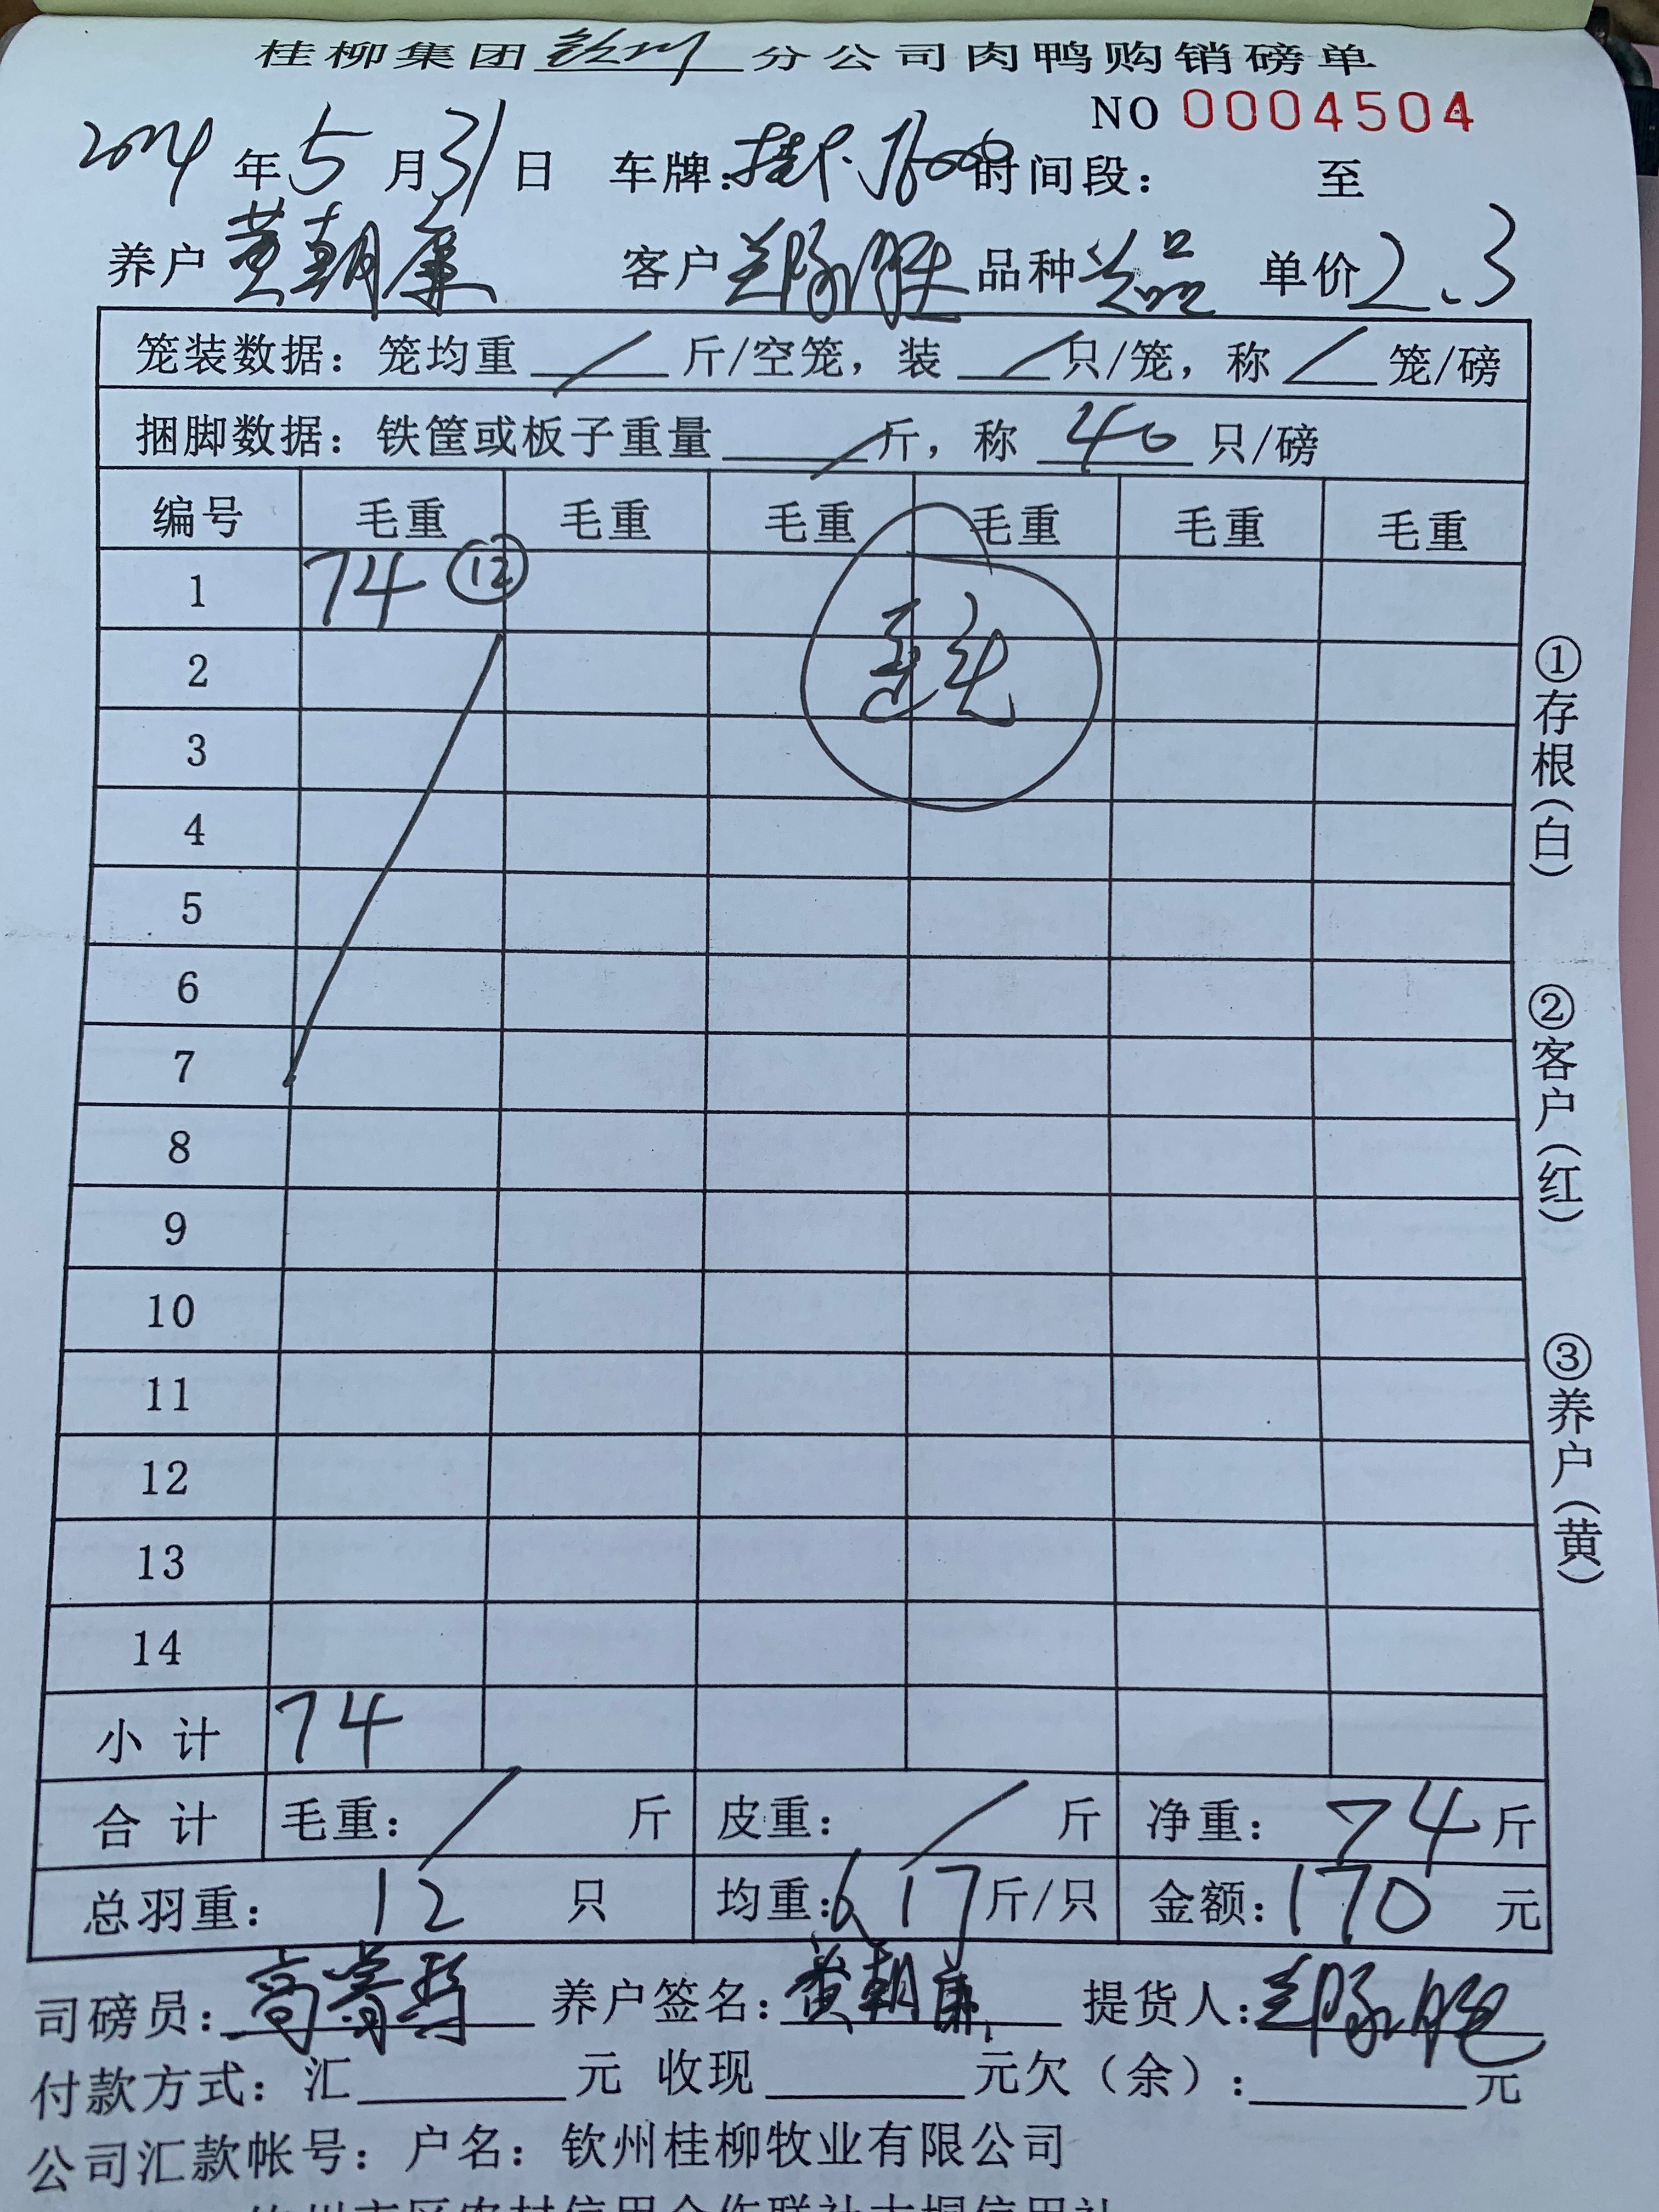 桂柳集团钦州分公司肉鸭购销磅单
NO 0004504
2024年5月31日 车牌: 时间段: 至
养户 黄朝廉 客户 兰陈胜 品种 次品 单价 2.3
笼装数据: 笼均重 / 斤/空笼, 装 / 只/笼, 称 / 笼/磅
捆脚数据: 铁筐或板子重量 / 斤, 称 40 只/磅
编号 毛重 毛重 毛重 毛重 毛重 毛重
1 74 ⑫
2
3
4
5
6
7
8
9
10
11
12
13
14
小计 74
合计 毛重: / 斤 皮重: / 斤 净重: 74 斤
总羽重: 12 只 均重: 6.17 斤/只 金额: 170 元
司磅员: 养户签名: 黄朝廉 提货人: 兰陈胜
付款方式: 汇 元 收现 元欠(余): 元
公司汇款帐号: 户名: 钦州桂柳牧业有限公司
①存根(白)
②客户(红)
③养户(黄)